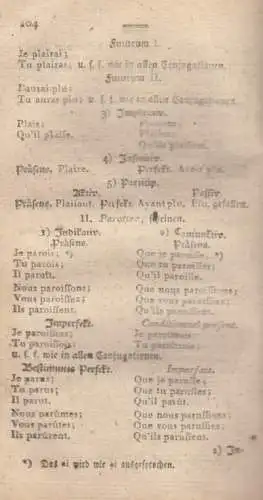 204
Futurum I.
Je plairai;
Tu plairas, u. s. f. wie in allen Conjugationen.
Futurum II.
J'aurai plu;
Tu auras plu; u. s. f. wie in allen Conjugationen.
3) Imperativ.
Plais;
Qu'il plaise.
4) Infinitiv.
Präsens. Plaire. Perfekt. Avoir plu.
5) Particip.
Aktiv. Passiv
Präsens. Plaisant. Perfekt. Ayant plu, Plu, gefallen.
11. Paroître, scheinen.
1) Indikativ. 2) Conjunktiv.
Präsens. Präsens.
Je parois; *) Que je paroisse;
Tu parois; Que tu paroisses;
Il paroît. Qu'il paroisse.
Nous paroissons; Que nous paroissions;
Vous paroissez; Que vous paroissiez;
Ils paroissent. Qu'ils paroissent.
Imperfekt. Conditionnel présent.
Je paroissois; Je paroîtrois;
Tu paroissois; Tu paroîtrois;
u. s. f. wie in allen Conjugationen.
Bestimmtes Perfekt. Imparfait.
Je parus; Que je parusse;
Tu parus; Que tu parusses;
Il parut. Qu'il parût.
Nous parûmes; Que nous parussions;
Vous parûtes; Que vous parussiez;
Ils parûrent. Qu'ils parussent.
3) Im-
*) Das oi wird wie ai ausgesprochen.